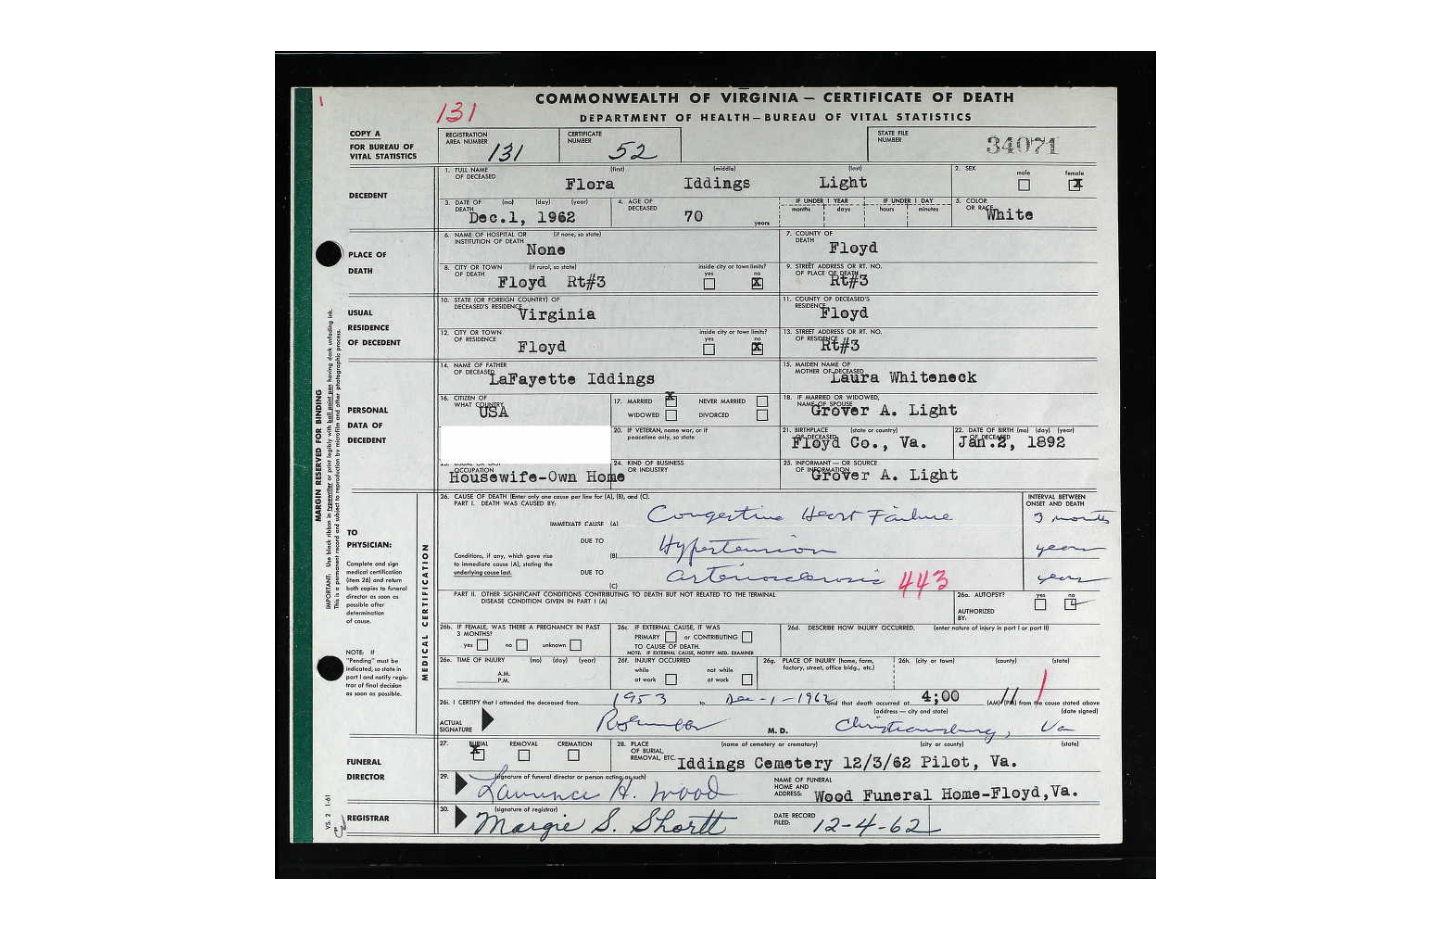 COMMONWEALTH OF VIRGINIA — CERTIFICATE OF DEATH
DEPARTMENT OF HEALTH—BUREAU OF VITAL STATISTICS
1
131
COPY A
FOR BUREAU OF
VITAL STATISTICS
REGISTRATION
AREA NUMBER 131
CERTIFICATE
NUMBER 52
STATE FILE
NUMBER 34071
DECEDENT
1. FULL NAME (first) (middle) (last)
OF DECEASED Flora Iddings Light
2. SEX male female X
3. DATE OF (mo) (day) (year)
DEATH Dec.1, 1962
4. AGE OF
DECEASED 70 years
IF UNDER 1 YEAR IF UNDER 1 DAY
months days hours minutes
5. COLOR
OR RACE White
PLACE OF
DEATH
6. NAME OF HOSPITAL OR (if none, so state)
INSTITUTION OF DEATH None
7. COUNTY OF
DEATH Floyd
8. CITY OR TOWN (if rural, so state) inside city or town limits?
OF DEATH Floyd Rt#3 yes no X
9. STREET ADDRESS OR RT. NO.
OF PLACE OF DEATH Rt#3
USUAL
RESIDENCE
OF DECEDENT
10. STATE (OR FOREIGN COUNTRY) OF
DECEASED'S RESIDENCE Virginia
11. COUNTY OF DECEASED'S
RESIDENCE Floyd
12. CITY OR TOWN inside city or town limits?
OF RESIDENCE Floyd yes no X
13. STREET ADDRESS OR RT. NO.
OF RESIDENCE Rt#3
PERSONAL
DATA OF
DECEDENT
14. NAME OF FATHER
OF DECEASED LaFayette Iddings
15. MAIDEN NAME OF
MOTHER OF DECEASED Laura Whiteneck
16. CITIZEN OF
WHAT COUNTRY USA
17. MARRIED X NEVER MARRIED
WIDOWED DIVORCED
18. IF MARRIED OR WIDOWED,
NAME OF SPOUSE Grover A. Light
20. IF VETERAN, name war, or if
peacetime only, so state
21. BIRTHPLACE (state or country)
OF DECEASED Floyd Co., Va.
22. DATE OF BIRTH (mo) (day) (year)
OF DECEASED Jan.2, 1892
OCCUPATION
Housewife-Own Home
24. KIND OF BUSINESS
OR INDUSTRY
25. INFORMANT — OR SOURCE
OF INFORMATION Grover A. Light
MARGIN RESERVED FOR BINDING
IMPORTANT: Use black ribbon in typewriter or print legibly with ball point pen having dark unfading ink.
This is a permanent record and subject to reproduction by microfilm and other photographic process.
TO
PHYSICIAN:
Complete and sign
medical certification
(item 26) and return
both copies to funeral
director as soon as
possible after
determination
of cause.
NOTE: If
"Pending" must be
indicated, so state in
part I and notify regis-
trar of final decision
as soon as possible.
MEDICAL CERTIFICATION
26. CAUSE OF DEATH (Enter only one cause per line for (A), (B), and (C).
PART I. DEATH WAS CAUSED BY:
INTERVAL BETWEEN
ONSET AND DEATH
IMMEDIATE CAUSE (A) Congestive Heart Failure 3 months
DUE TO
Conditions, if any, which gave rise
to immediate cause (A), stating the
underlying cause last.
(B) Hypertension years
DUE TO
(C) arteriosclerosis 443 years
PART II. OTHER SIGNIFICANT CONDITIONS CONTRIBUTING TO DEATH BUT NOT RELATED TO THE TERMINAL
DISEASE CONDITION GIVEN IN PART I (A)
26a. AUTOPSY? yes no
AUTHORIZED
BY:
26b. IF FEMALE, WAS THERE A PREGNANCY IN PAST
3 MONTHS?
yes no unknown
26c. IF EXTERNAL CAUSE, IT WAS
PRIMARY or CONTRIBUTING
TO CAUSE OF DEATH.
NOTE: IF EXTERNAL CAUSE, NOTIFY MED. EXAMINER
26d. DESCRIBE HOW INJURY OCCURRED. (enter nature of injury in part I or part II)
26e. TIME OF INJURY (mo) (day) (year)
A.M.
P.M.
26f. INJURY OCCURRED
while not while
at work at work
26g. PLACE OF INJURY (home, farm,
factory, street, office bldg., etc.)
26h. (city or town) (county) (state)
26i. I CERTIFY that I attended the deceased from 1953 to Dec-1-1962 and that death occurred at 4;00 (AM) (PM) from the cause stated above
(address — city and state) (date signed)
ACTUAL
SIGNATURE M. D. Christiansburg, Va
FUNERAL
DIRECTOR
27. BURIAL X REMOVAL CREMATION
28. PLACE (name of cemetery or crematory) (city or county) (state)
OF BURIAL,
REMOVAL, ETC. Iddings Cemetery 12/3/62 Pilot, Va.
29. (signature of funeral director or person acting as such)
Lawrence H. Wood
NAME OF FUNERAL
HOME AND
ADDRESS: Wood Funeral Home-Floyd,Va.
REGISTRAR
30. (signature of registrar)
Margie S. Shortt
DATE RECORD
FILED: 12-4-62
VS. 2 1-61